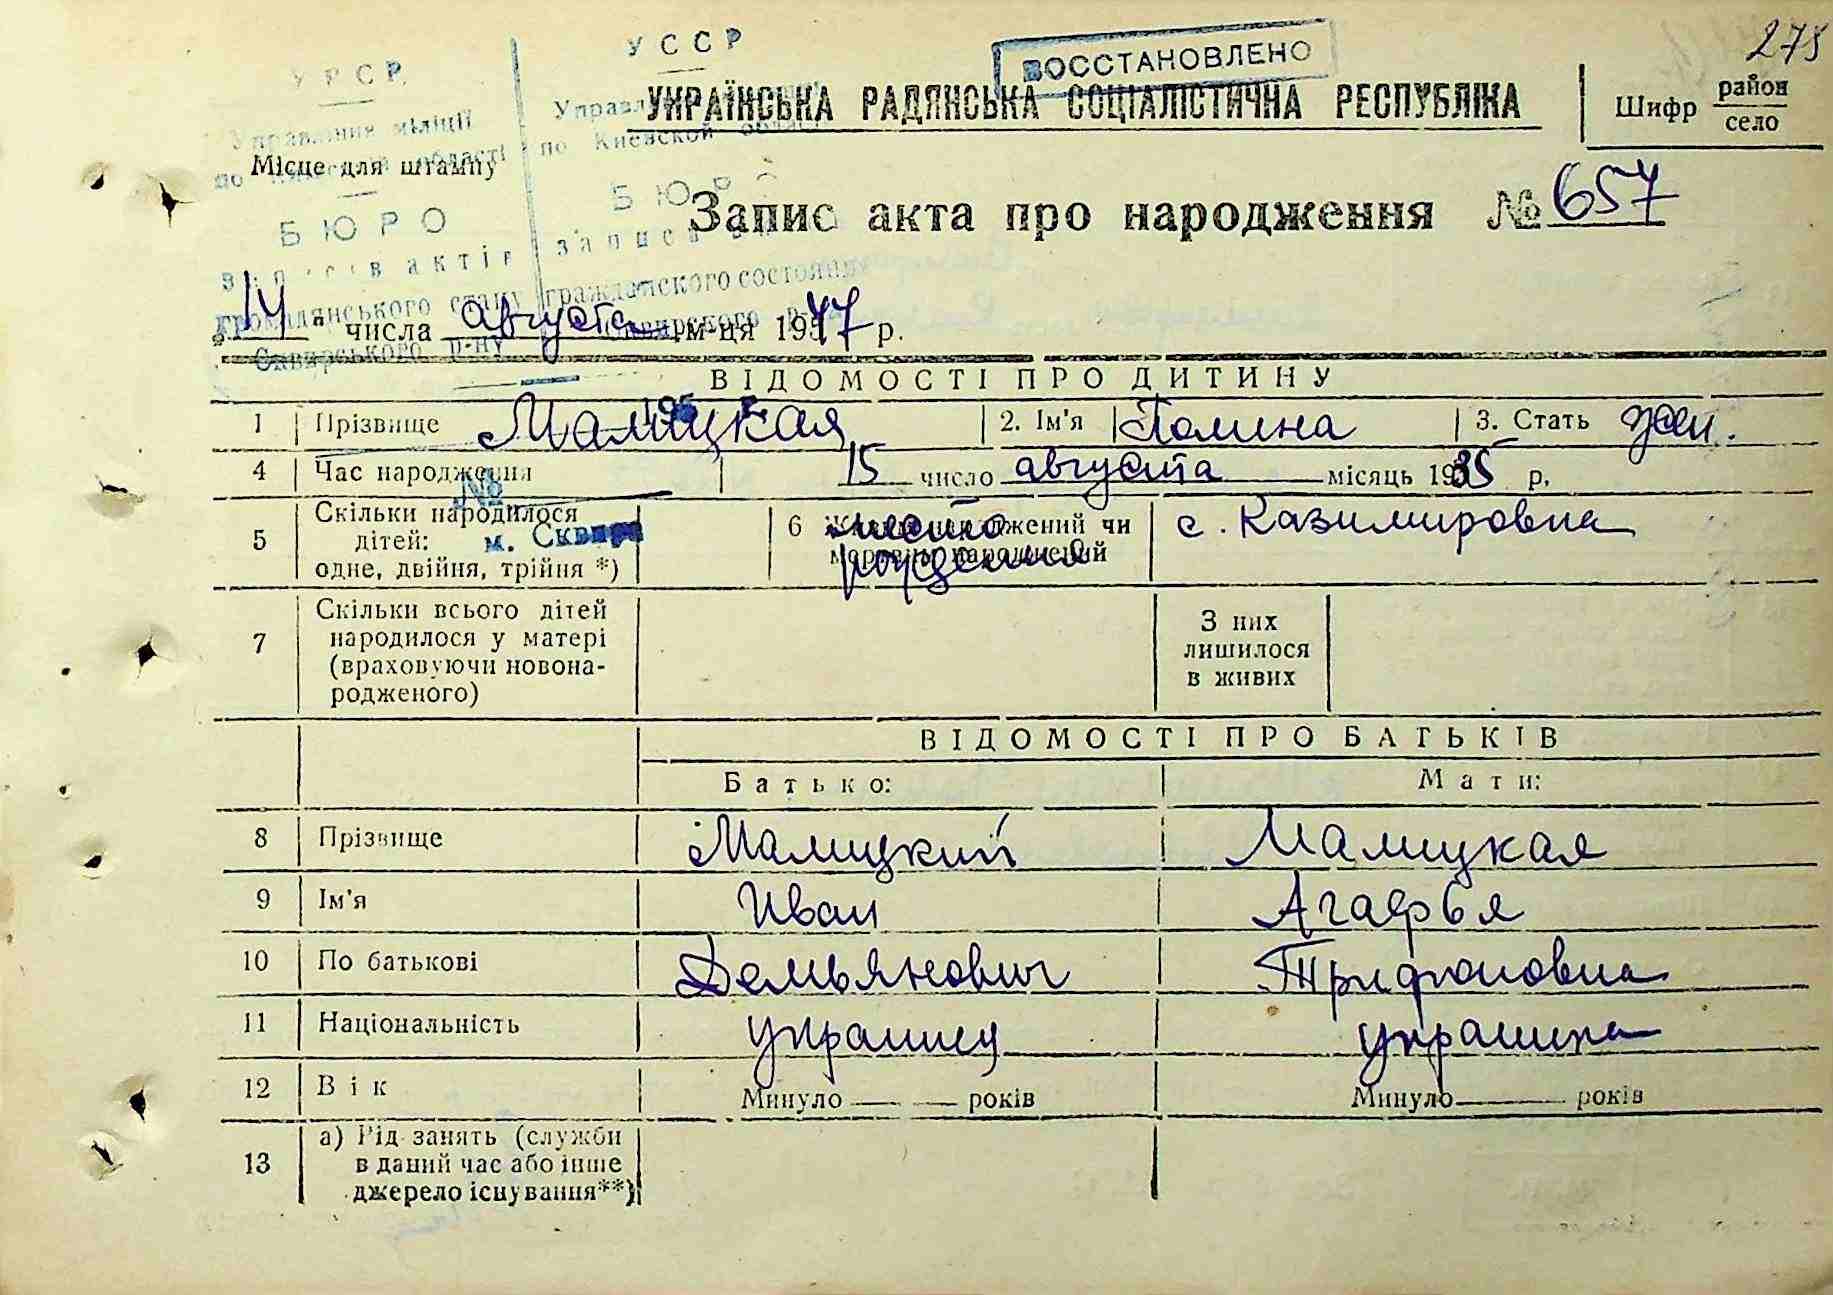 275
УССР
ВОССТАНОВЛЕНО
УРСР
УКРАЇНСЬКА РАДЯНСЬКА СОЦІАЛІСТИЧНА РЕСПУБЛІКА
Шифр район
село
Управління міліції
по Київській області
по Киевской области
Місце для штампу
БЮРО
БЮРО
Запис акта про народження № 657
записів актів
громадянського стану
гражданского состояния
Сквирського р-ну
Сквирского
„14“ числа августа м-ця 1957 р.
ВІДОМОСТІ ПРО ДИТИНУ
195
1 Прізвище Малицкая 2. Ім'я Полина 3. Стать жен.
4 Час народження 15 число августа місяць 1935 р.
№
5 Скільки народилося
дітей:
одне, двійня, трійня *)
м. Сквира
6 Живим народжений чи
мертвим народжений
место
рождения
с. Казимировка
7 Скільки всього дітей
народилося у матері
(враховуючи новона-
родженого)
З них
лишилося
в живих
ВІДОМОСТІ ПРО БАТЬКІВ
Батько: Мати:
8 Прізвище Малицкий Малицкая
9 Ім'я Иван Агафья
10 По батькові Демьянович Трифоновна
11 Національність украинец украинка
12 Вік Минуло — — років Минуло — років
13 а) Рід занять (служби
в даний час або інше
джерело існування**)